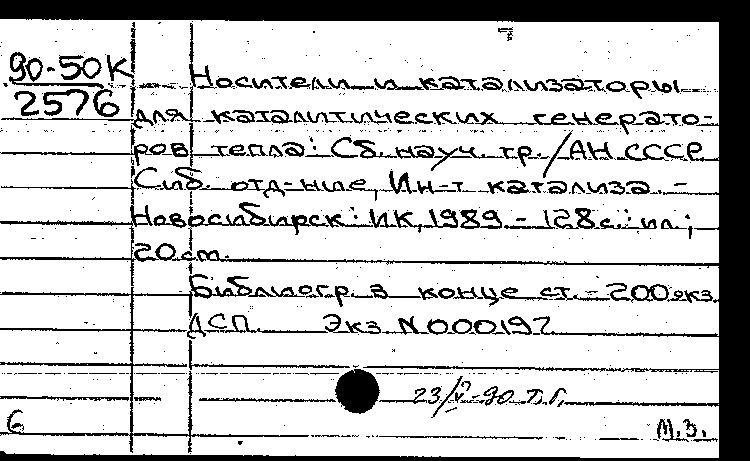 90-50К
2576
Носители и катализаторы
для каталитических генерато-
ров тепла: Сб. науч. тр./АН СССР
Сиб. отд-ние, Ин-т катализа. -
Новосибирск: ИК, 1989. - 128с.: ил.;
20 см.
Библиогр. в конце ст. - 200 экз.
ДСП. Экз. N 000197
23/V-90
6
М.З.